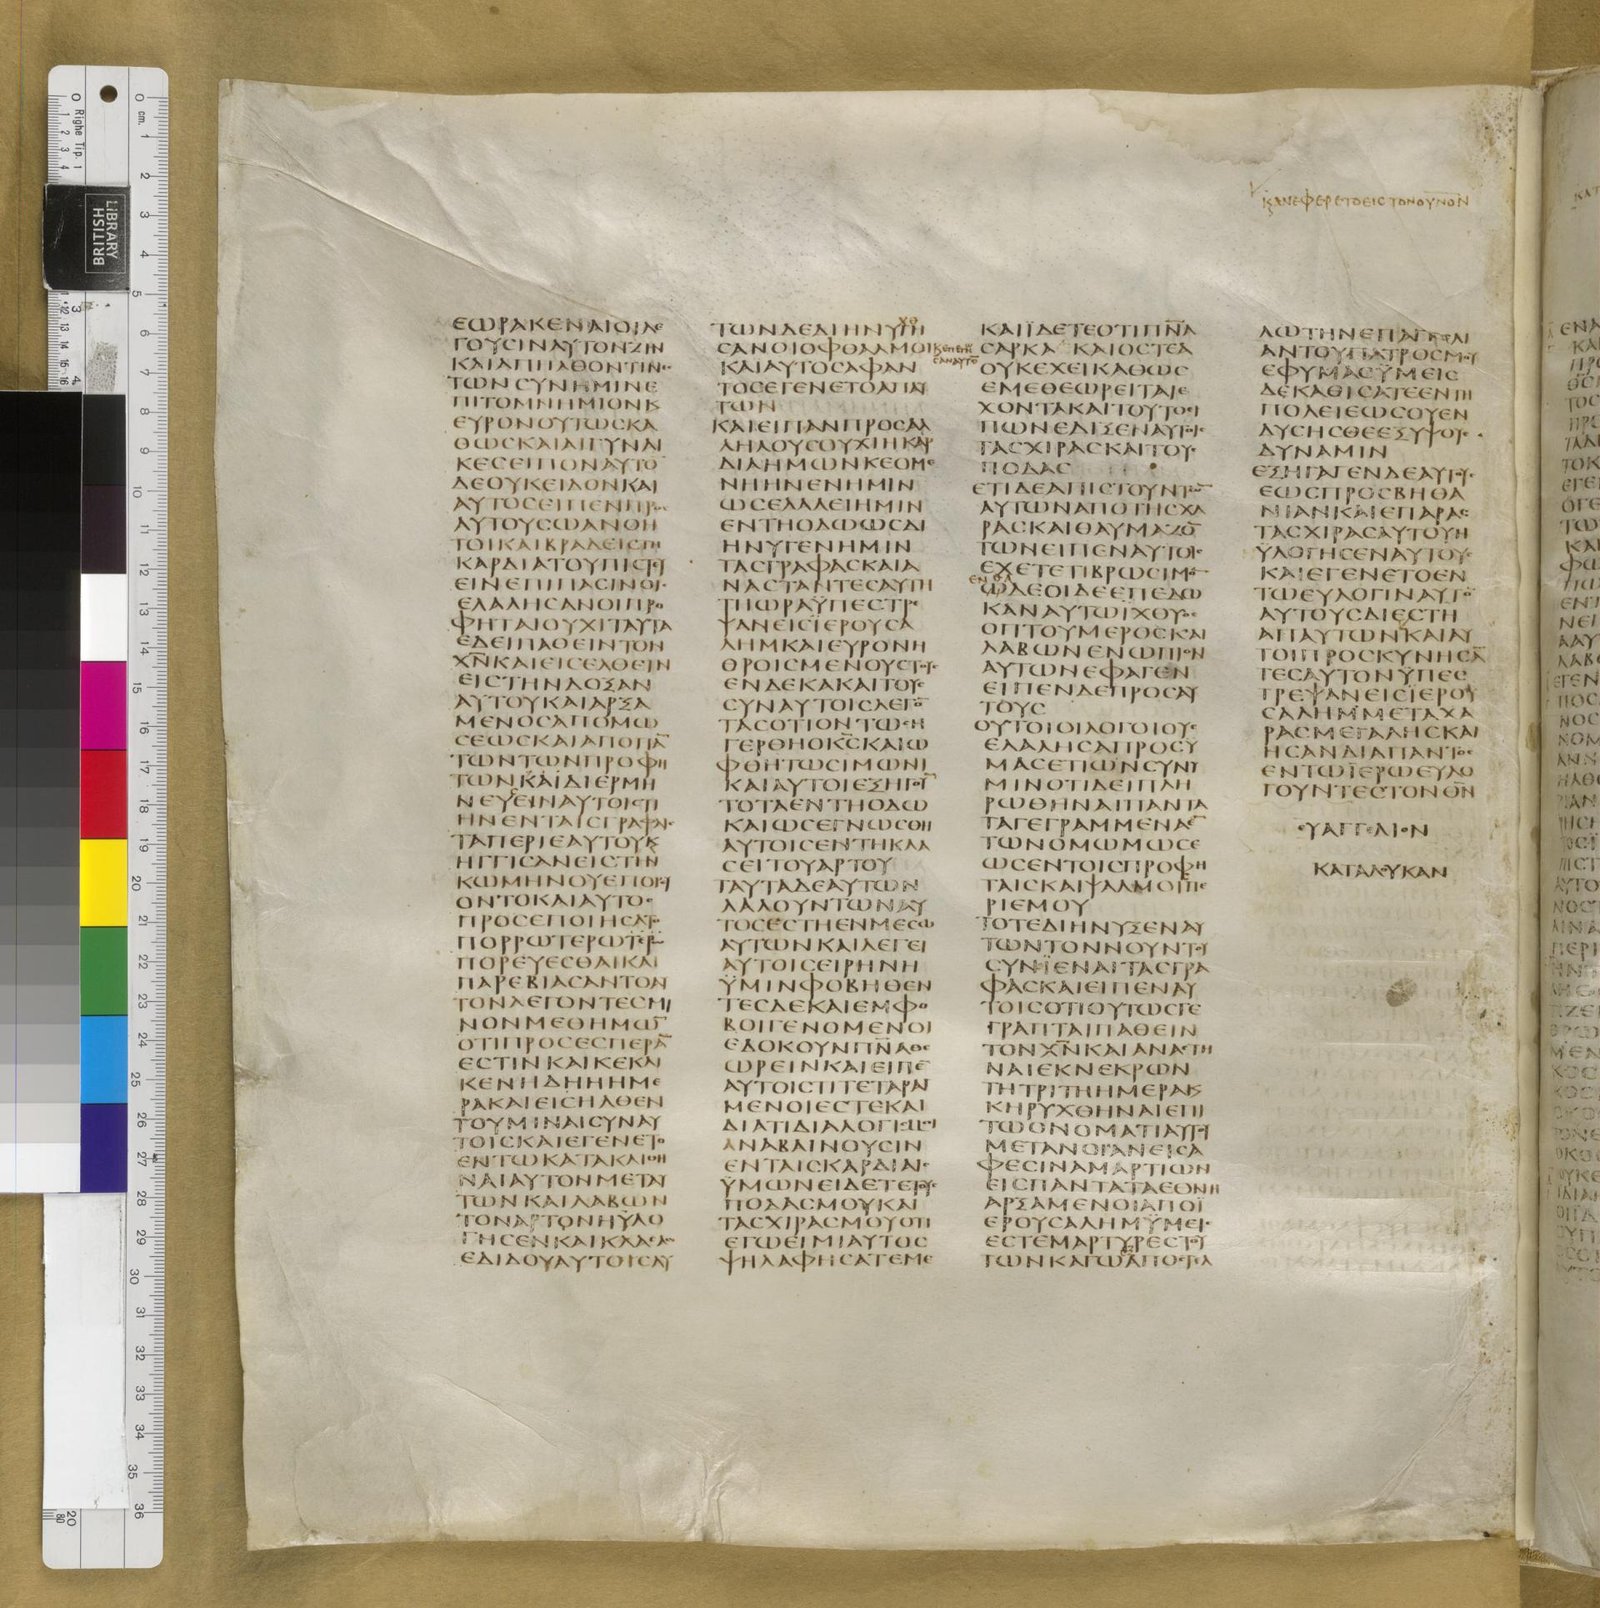 κ ανεφερετο εις τον ουνον
ΕΩΡΑΚΕΝΑΙΟΙΛΕ
ΓΟΥCΙΝΑΥΤΟΝΖΗΝ
ΚΑΙΑΠΗΛΘΟΝΤΙΝΕC
ΤΩΝCΥΝΗΜΙΝΕ
ΠΙΤΟΜΝΗΜΙΟΝΚ
ΕΥΡΟΝΟΥΤΩCΚΑ
ΘΩCΚΑΙΑΙΓΥΝΑΙ
ΚΕCΕΙΠΟΝΑΥΤΟ
ΔΕΟΥΚΕΙΔΟΝΚΑΙ
ΑΥΤΟCΕΙΠΕΝΠΡΟC
ΑΥΤΟΥCΩΑΝΟΗ
ΤΟΙΚΑΙΒΡΑΔΕΙCΤΗ
ΚΑΡΔΙΑΤΟΥΠΙCΤΕΥ
ΕΙΝΕΠΙΠΑCΙΝΟΙC
ΕΛΑΛΗCΑΝΟΙΠΡΟ
ΦΗΤΑΙΟΥΧΙΤΑΥΤΑ
ΕΔΕΙΠΑΘΕΙΝΤΟΝ
ΧΝΚΑΙΕΙCΕΛΘΕΙΝ
ΕΙCΤΗΝΔΟΞΑΝ
ΑΥΤΟΥΚΑΙΑΡΞΑ
ΜΕΝΟCΑΠΟΜΩ
CΕΩCΚΑΙΑΠΟΠΑ
ΤΩΝΤΩΝΠΡΟΦΗ
ΤΩΝΚΑΙΔΙΕΡΜΗ
ΝΕΥΕΙΝΑΥΤΟΙCΤΙ
ΗΝΕΝΤΑΙCΓΡΑΦΑΙC
ΤΑΠΕΡΙΕΑΥΤΟΥΚ
ΗΓΓΙCΑΝΕΙCΤΗΝ
ΚΩΜΗΝΟΥΕΠΟΡΕΥ
ΟΝΤΟΚΑΙΑΥΤΟC
ΠΡΟCΕΠΟΙΗCΑΤΟ
ΠΟΡΡΩΤΕΡΩΤΕΡ
ΠΟΡΕΥΕCΘΑΙΚΑΙ
ΠΑΡΕΒΙΑCΑΝΤΟΝ
ΤΟΝΛΕΓΟΝΤΕCΜΙ
ΝΟΝΜΕΘΗΜΩ
ΟΤΙΠΡΟCΕCΠΕΡΑ
ΕCΤΙΝΚΑΙΚΕΚΛΙ
ΚΕΝΗΔΗΗΗΜΕ
ΡΑΚΑΙΕΙCΗΛΘΕΝ
ΤΟΥΜΙΝΑΙCΥΝΑΥ
ΤΟΙCΚΑΙΕΓΕΝΕΤΟ
ΕΝΤΩΚΑΤΑΚΛΙΘΗ
ΝΑΙΑΥΤΟΝΜΕΤΑΥ
ΤΩΝΚΑΙΛΑΒΩΝ
ΤΟΝΑΡΤΟΝΗΫΛΟ
ΓΗCΕΝΚΑΙΚΛΑCΑC
ΕΔΙΔΟΥΑΥΤΟΙCΑΥ
ΤΩΝΔΕΔΙΗΝΥΓΗ
χθ
CΑΝΟΙΟΦΘΑΛΜΟΙ
κ επεγν
σαν αυτο
ΚΑΙΑΥΤΟCΑΦΑΝ
ΤΟCΕΓΕΝΕΤΟΑΠΑΥ
ΤΩΝ
ΚΑΙΕΙΠΑΝΠΡΟCΑΛ
ΛΗΛΟΥCΟΥΧΙΗΚΑΡ
ΔΙΑΗΜΩΝΚΕΟΜΕ
ΝΗΗΝΕΝΗΜΙΝ
ΩCΕΛΑΛΕΙΗΜΙΝ
ΕΝΤΗΟΔΩΩCΔΙ
ΗΝΥΓΕΝΗΜΙΝ
ΤΑCΓΡΑΦΑCΚΑΙΑ
ΝΑCΤΑΝΤΕCΑΥΤΗ
ΤΗΩΡΑΫΠΕCΤΡΕ
ΨΑΝΕΙCΙΕΡΟΥCΑ
ΛΗΜΚΑΙΕΥΡΟΝΗ
ΘΡΟΙCΜΕΝΟΥCΤΟΥC
ΕΝΔΕΚΑΚΑΙΤΟΥC
CΥΝΑΥΤΟΙCΛΕΓΟ
ΤΑCΟΤΙΟΝΤΩCΗ
ΓΕΡΘΗΟΚCΚΑΙΩ
ΦΘΗΤΩCΙΜΩΝΙ
ΚΑΙΑΥΤΟΙΕΞΗΓΟΥ
ΤΟΤΑΕΝΤΗΟΔΩ
ΚΑΙΩCΕΓΝΩCΘΗ
ΑΥΤΟΙCΕΝΤΗΚΛΑ
CΕΙΤΟΥΑΡΤΟΥ
ΤΑΥΤΑΔΕΑΥΤΩΝ
ΛΑΛΟΥΝΤΩΝΑΥ
ΤΟCΕCΤΗΕΝΜΕCΩ
ΑΥΤΩΝΚΑΙΛΕΓΕΙ
ΑΥΤΟΙCΕΙΡΗΝΗ
ΫΜΙΝΦΟΒΗΘΕΝ
ΤΕCΔΕΚΑΙΕΜΦΟ
ΒΟΙΓΕΝΟΜΕΝΟΙ
ΕΔΟΚΟΥΝΠΝΑΘΕ
ΩΡΕΙΝΚΑΙΕΙΠΕ
ΑΥΤΟΙCΤΙΤΕΤΑΡΑΓ
ΜΕΝΟΙΕCΤΕΚΑΙ
ΔΙΑΤΙΔΙΑΛΟΓΙCΜΟΙ
ΑΝΑΒΑΙΝΟΥCΙΝ
ΕΝΤΑΙCΚΑΡΔΙΑΙC
ΫΜΩΝΕΙΔΕΤΕΤΟΥC
ΠΟΔΑCΜΟΥΚΑΙ
ΤΑCΧΙΡΑCΜΟΥΟΤΙ
ΕΓΩΕΙΜΙΑΥΤΟC
ΨΗΛΑΦΗCΑΤΕΜΕ
ΚΑΙΪΔΕΤΕΟΤΙΠΝΑ
CΑΡΚΑCΚΑΙΟCΤΕΑ
ΟΥΚΕΧΕΙΚΑΘΩC
ΕΜΕΘΕΩΡΕΙΤΑΙΕ
ΧΟΝΤΑΚΑΙΤΟΥΤΟΕΙ
ΠΩΝΕΔΙΞΕΝΑΥΤΟΙC
ΤΑCΧΙΡΑCΚΑΙΤΟΥC
ΠΟΔΑC
ΕΤΙΔΕΑΠΙCΤΟΥΝΤΩ
ΑΥΤΩΝΑΠΟΤΗCΧΑ
ΡΑCΚΑΙΘΑΥΜΑΖΟ
ΤΩΝΕΙΠΕΝΑΥΤΟΙC
ΕΧΕΤΕΤΙΒΡΩCΙΜΟ
ενθα
ΩΔΕΟΙΔΕΕΠΕΔΩ
ΚΑΝΑΥΤΩΪΧΘΥΟC
ΟΠΤΟΥΜΕΡΟCΚΑΙ
ΛΑΒΩΝΕΝΩΠΙΟΝ
ΑΥΤΩΝΕΦΑΓΕΝ
ΕΙΠΕΝΔΕΠΡΟCΑΥ
ΤΟΥC
ΟΥΤΟΙΟΙΛΟΓΟΙΟΥC
ΕΛΑΛΗCΑΠΡΟCΫ
ΜΑCΕΤΙΩΝCΥΝΫ
ΜΙΝΟΤΙΔΕΙΠΛΗ
ΡΩΘΗΝΑΙΠΑΝΤΑ
ΤΑΓΕΓΡΑΜΜΕΝΑΕ
ΤΩΝΟΜΩΜΩCΕ
ΩCΕΝΤΟΙCΠΡΟΦΗ
ΤΑΙCΚΑΙΨΑΛΜΟΙCΠΕ
ΡΙΕΜΟΥ
ΤΟΤΕΔΙΗΝΥΞΕΝΑΥ
ΤΩΝΤΟΝΝΟΥΝΤΟΥ
CΥΝΪΕΝΑΙΤΑCΓΡΑ
ΦΑCΚΑΙΕΙΠΕΝΑΥ
ΤΟΙCΟΤΙΟΥΤΩCΓΕ
ΓΡΑΠΤΑΙΠΑΘΕΙΝ
ΤΟΝΧΝΚΑΙΑΝΑCΤΗ
ΝΑΙΕΚΝΕΚΡΩΝ
ΤΗΤΡΙΤΗΗΜΕΡΑΚ
ΚΗΡΥΧΘΗΝΑΙΕΠΙ
ΤΩΟΝΟΜΑΤΙΑΥΤΟΥ
ΜΕΤΑΝΟΙΑΝΕΙCΑ
ΦΕCΙΝΑΜΑΡΤΙΩΝ
ΕΙCΠΑΝΤΑΤΑΕΘΝΗ
ΑΡΞΑΜΕΝΟΙΑΠΟΪ
ΕΡΟΥCΑΛΗΜΫΜΕΙC
ΕCΤΕΜΑΡΤΥΡΕCΤΟΥ
ΤΩΝΚΑΓΩΑΠΟCΤΕΛ
ΛΩΤΗΝΕΠΑΓΓΕΛΙ
ΑΝΤΟΥΠΑΤΡΟCΜΟΥ
ΕΦΥΜΑCΫΜΕΙC
ΔΕΚΑΘΙCΑΤΕΕΝΤΗ
ΠΟΛΕΙΕΩCΟΥΕΝ
ΔΥCΗCΘΕΕΞΥΨΟΥC
ΔΥΝΑΜΙΝ
ΕΞΗΓΑΓΕΝΔΕΑΥΤΟΥC
ΕΩCΠΡΟCΒΗΘΑ
ΝΙΑΝΚΑΙΕΠΑΡΑC
ΤΑCΧΙΡΑCΑΥΤΟΥΗ
ΫΛΟΓΗCΕΝΑΥΤΟΥC
ΚΑΙΕΓΕΝΕΤΟΕΝ
ΤΩΕΥΛΟΓΙΝΑΥΤΟ
ΑΥΤΟΥCΔΙΕCΤΗ
ΑΠΑΥΤΩΝΚΑΙΑΥ
ΤΟΙΠΡΟCΚΥΝΗCΑ
ΤΕCΑΥΤΟΝΫΠΕC
ΤΡΕΨΑΝΕΙCΪΕΡΟΥ
CΑΛΗΜΜΕΤΑΧΑ
ΡΑCΜΕΓΑΛΗCΚΑΙ
ΗCΑΝΔΙΑΠΑΝΤΟC
ΕΝΤΩΪΕΡΩΕΥΛΟ
ΓΟΥΝΤΕCΤΟΝΘΝ
ΕΥΑΓΓΕΛΙΟΝ
ΚΑΤΑΛΟΥΚΑΝ
BRITISH
LIBRARY